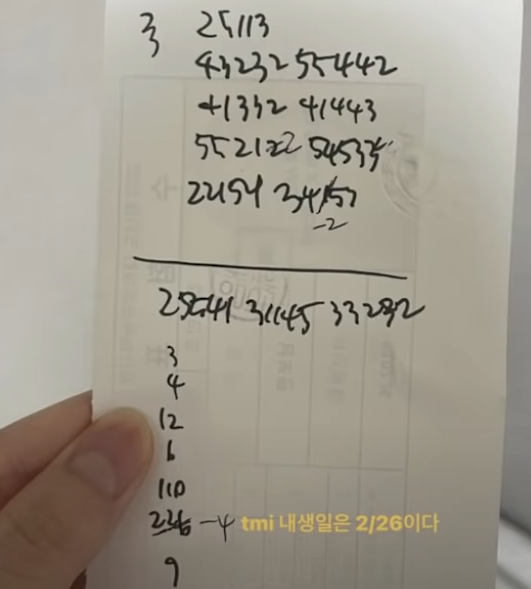 3 25113
43232 55442
41332 41443
55212 54535
22154 34157
-2
25541 31145 33232
3
4
12
6
110
226 -4 tmi 내생일은 2/26이다
9